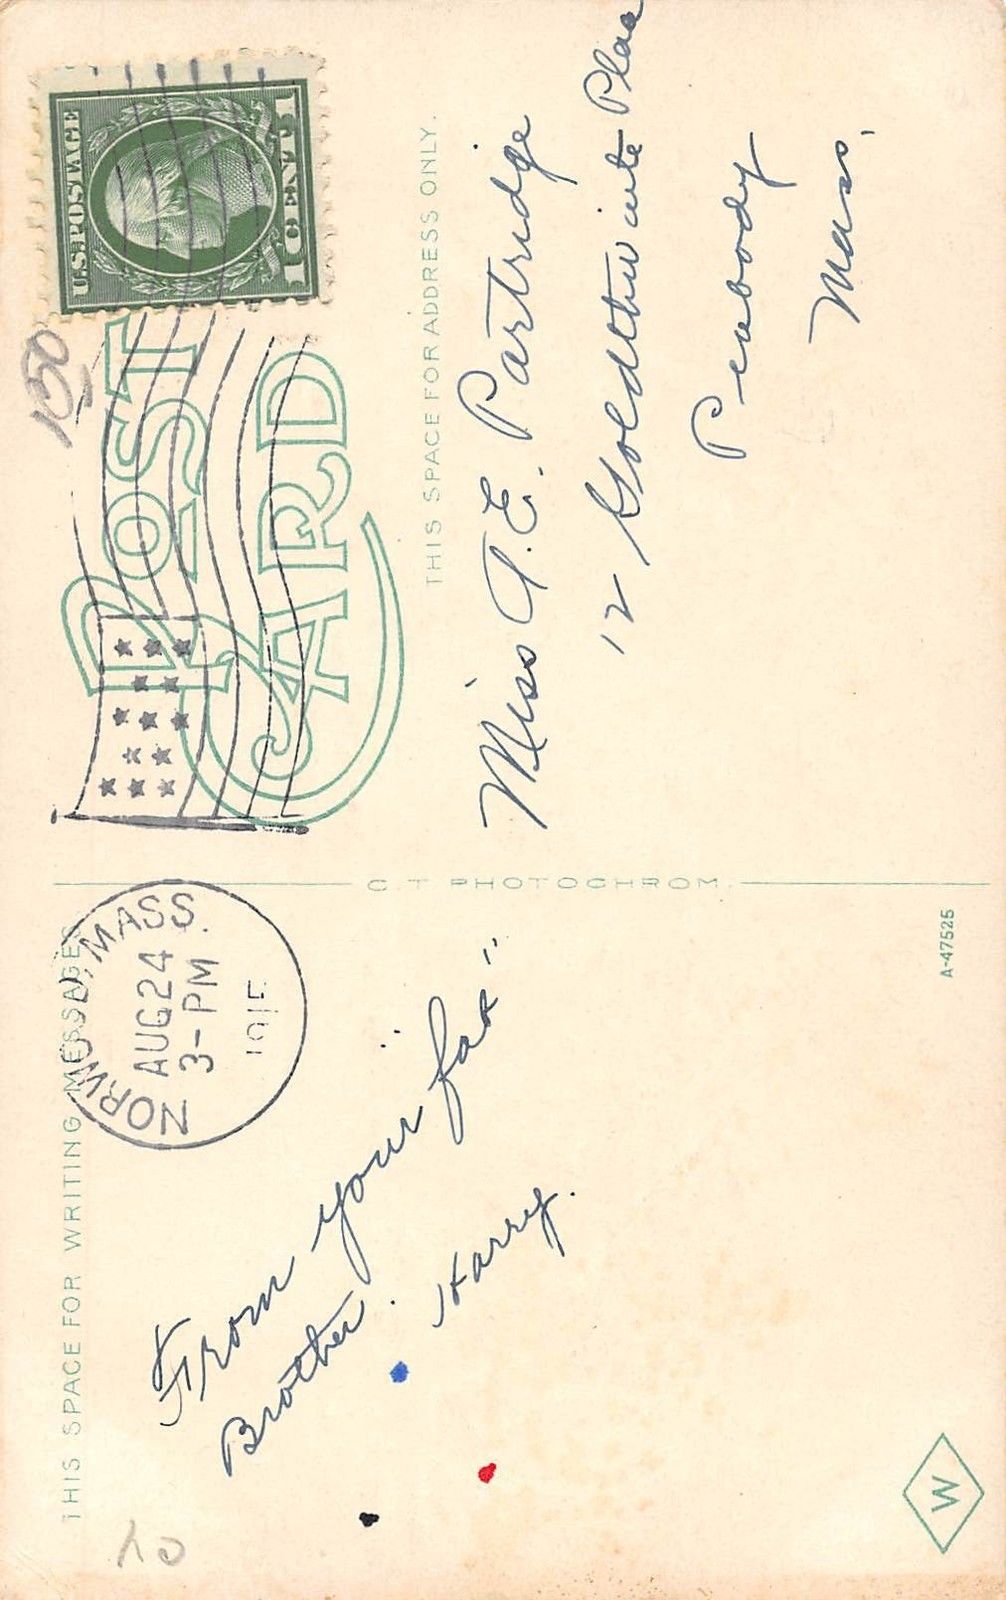 THIS SPACE FOR WRITING MESSAGES
POST CARD
THIS SPACE FOR ADDRESS ONLY.
U.S. POSTAGE
1 CENT 1
NORWOOD, MASS.
AUG 24
3-PM
1915
150
From your
Brother.
Harry.
Miss A. E. Partridge
12 Goldthwaite Plac
Peabody
Mass.
C.T. PHOTOCHROM.
A-47525
W
10